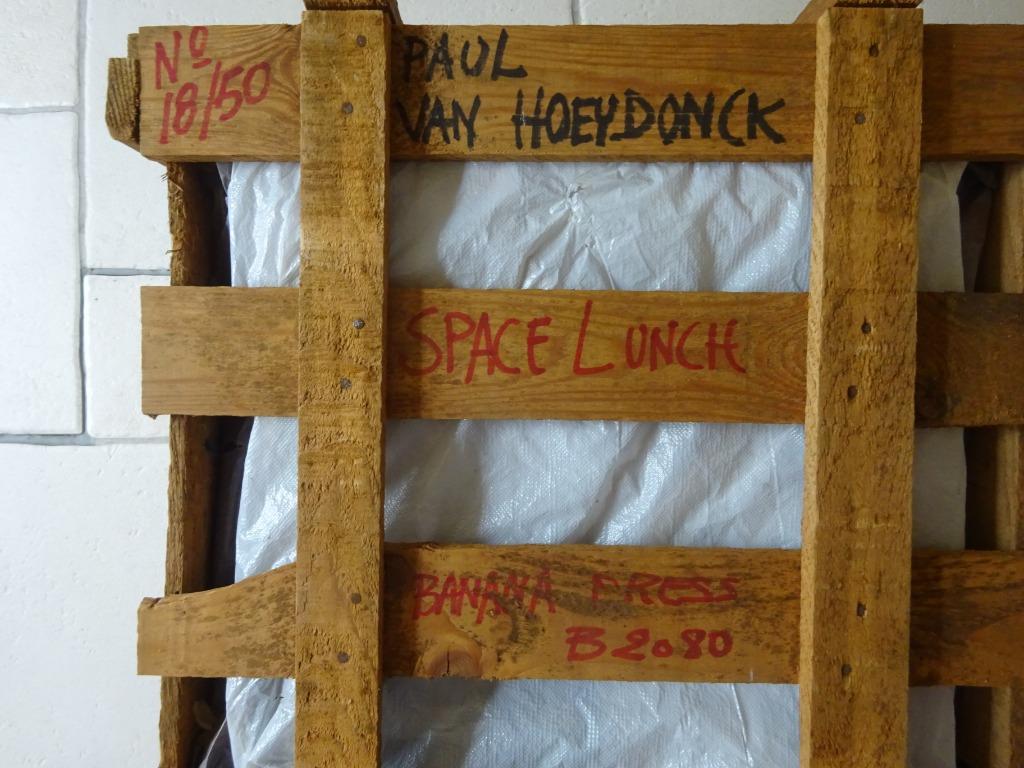 Nº
18/50
PAUL
VAN HOEYDONCK
SPACE LUNCH
BANANA PRESS
B2080